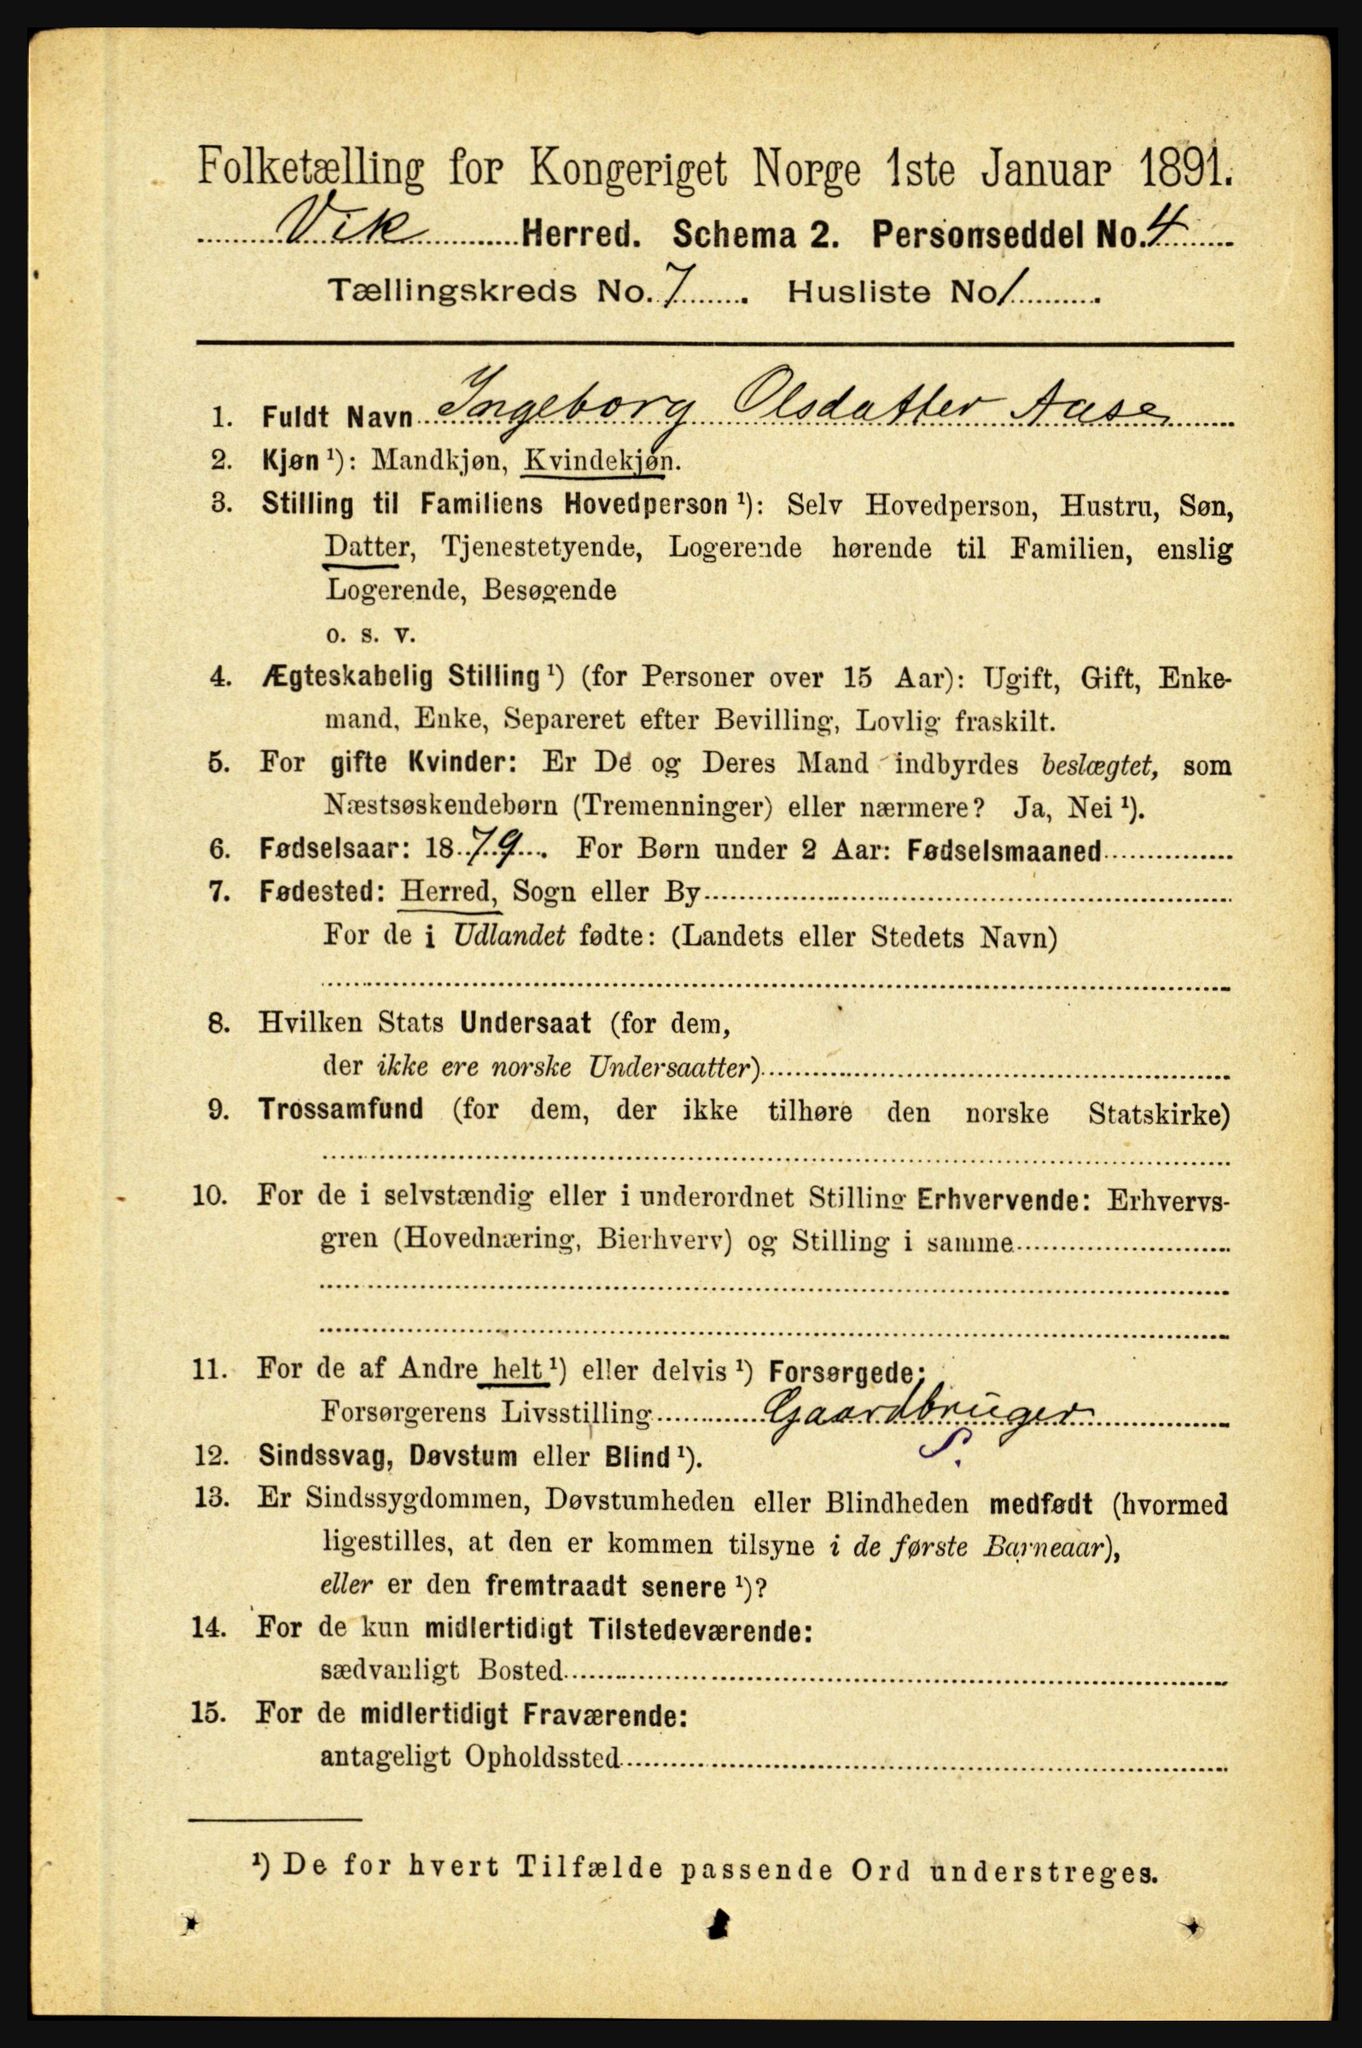 Folketælling for Kongeriget Norge 1ste Januar 1891.
Vik Herred. Schema 2. Personseddel No. 4
Tællingskreds No. 7. Husliste No 1.
1. Fuldt Navn Ingeborg Olsdatter Aase
2. Kjøn ¹): Mandkjøn, Kvindekjøn.
3. Stilling til Familiens Hovedperson ¹): Selv Hovedperson, Hustru, Søn,
Datter, Tjenestetyende, Logerende hørende til Familien, enslig
Logerende, Besøgende
o. s. v.
4. Ægteskabelig Stilling ¹) (for Personer over 15 Aar): Ugift, Gift, Enke-
mand, Enke, Separeret efter Bevilling, Lovlig fraskilt.
5. For gifte Kvinder: Er De og Deres Mand indbyrdes beslægtet, som
Næstsøskendebørn (Tremenninger) eller nærmere? Ja, Nei ¹).
6. Fødselsaar: 1879. For Børn under 2 Aar: Fødselsmaaned
7. Fødested: Herred, Sogn eller By
For de i Udlandet fødte: (Landets eller Stedets Navn)
8. Hvilken Stats Undersaat (for dem,
der ikke ere norske Undersaatter)
9. Trossamfund (for dem, der ikke tilhøre den norske Statskirke)
10. For de i selvstændig eller i underordnet Stilling Erhvervende: Erhvervs-
gren (Hovednæring, Bierhverv) og Stilling i samme
11. For de af Andre helt ¹) eller delvis ¹) Forsørgede:
Forsørgerens Livsstilling Gaardbruger
S.
12. Sindssvag, Døvstum eller Blind ¹).
13. Er Sindssygdommen, Døvstumheden eller Blindheden medfødt (hvormed
ligestilles, at den er kommen tilsyne i de første Barneaar),
eller er den fremtraadt senere ¹)?
14. For de kun midlertidigt Tilstedeværende:
sædvanligt Bosted
15. For de midlertidigt Fraværende:
antageligt Opholdssted
¹) De for hvert Tilfælde passende Ord understreges.